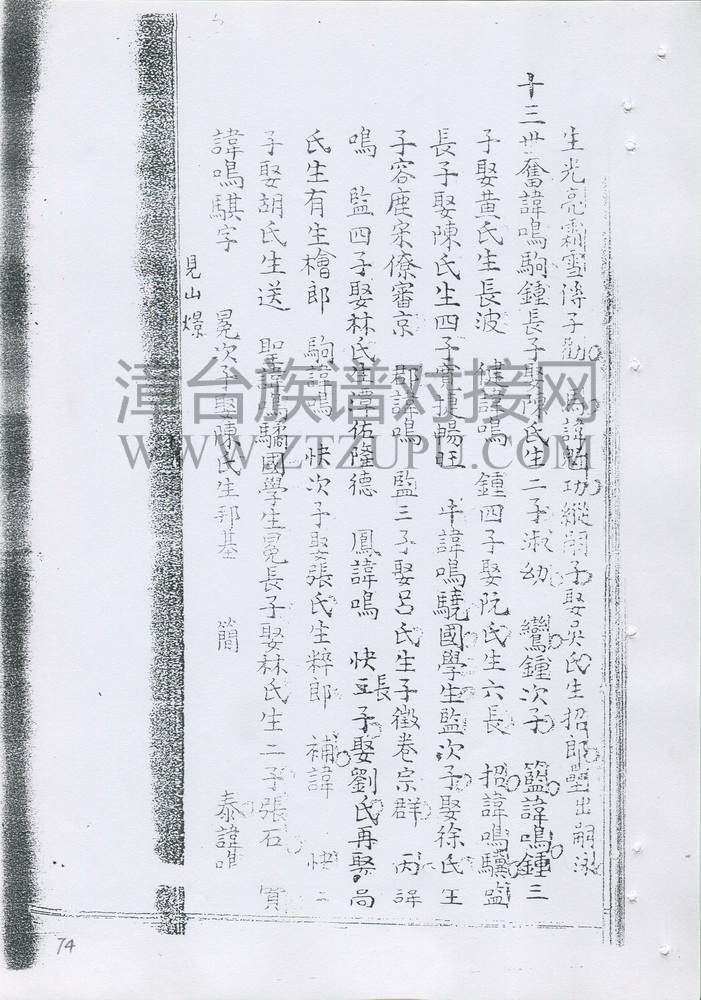 生光亮霱雪溥子勸 馬諱魁功縱嗣子娶吳氏生招郎壘出嗣泳
十三世奮諱鳴駒鍾長子娶陳氏生二子淑幼 鸞鍾次子 籃諱鳴鍾三
子娶黃氏生長波 健諱鳴 鍾四子娶阮氏生六長 招諱鳴驥監
長子娶陳氏生四子實提暢旺 牛諱鳴驍國學生監次子娶徐氏生
子容鹿宋僚審京 郡諱鳴 監三子娶呂氏生子徵卷宗群 丙諱
鳴 監四子娶林氏生潭佑隆德 鳳諱鳴 快長子娶劉氏再娶尚
氏生有生檜郎 駒諱鳴 快次子娶張氏生粹郎 補諱 快二
子娶胡氏生送 聖諱鳴驕國學生冕長子娶林氏生二子張石 質
諱鳴騏字 冕次子娶陳氏生邦基 簡 泰諱唯
見山燝
漳台族谱对接网
WWW.ZTZUPU.COM
74